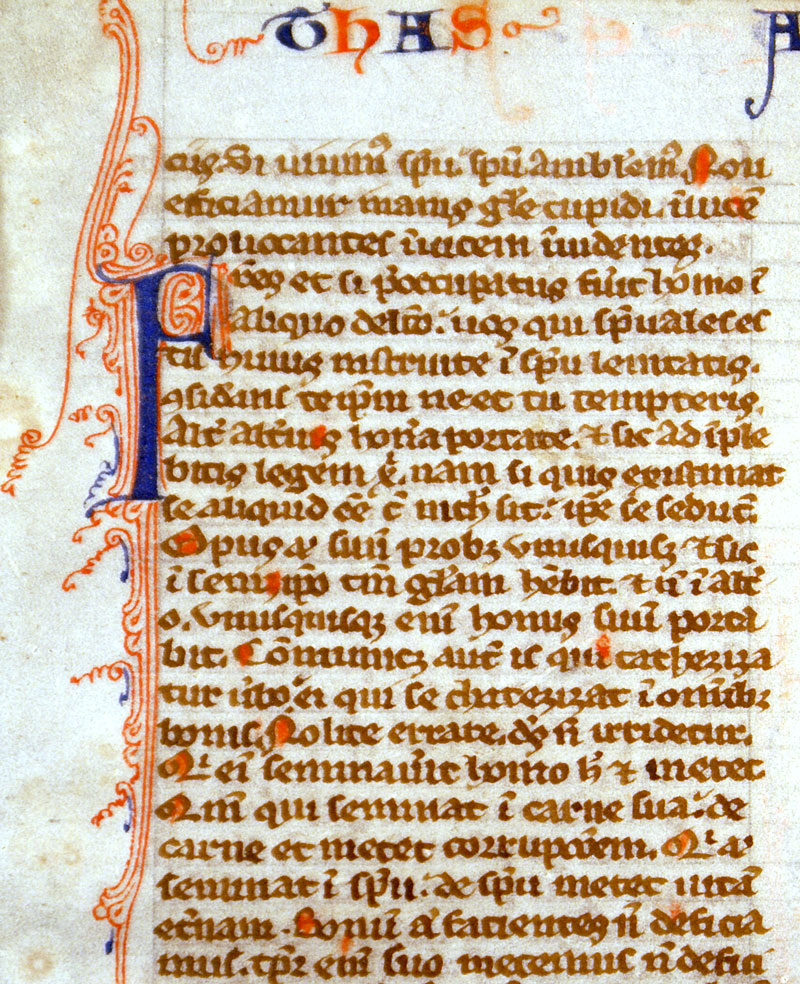 THAS A
cis. Si uiuimꝰ sp̅u. sp̅u amblem̅ꝰ. Non
efficiamur inanis gl̅e cupidi. inuicē
prouocantes inuicem inuidentes.
Fr̅es et si p̅occupatus fuit homo ī
aliquo delc̅o. uos qui sp̅uales es
tis huiuꝰ instruite ī sp̅u lenitatis.
ꝯsid̅ans te ip̅m ne et tu tempteris.
Alt̅ alt̅ius hon̅a portate. ⁊ sic adiple
bitis legem x̅. nam si quis existimat
se aliquid eē c̅ nich̅ sit. ip̅e se seduc̅.
Opus aͬ suū probꝫ vnusquisqꝫ ⁊ sic
ī semetip̅o tm̅ gl̅am hēbit. ⁊ n̅ ī alt̅
o. vnusquisqꝫ enī honus suū porta
bit. Cōmunicꝫ aut̅ is qui catheziza
tur u̅bo. ei qui se chatezizat ī omībꝫ
bonis. Nolite errare. dꝰ n̅ irridetur.
Q̅ eī seminauit homo h̅ ⁊ metet
Qm̅ qui seminat ī carne sua. de
carne et metet corrupcōem. Qͥ aͬ
seminat ī sp̅u. de sp̅u metet uitā
et̅nam. Bonū aͬ facientes n̅ deficia
mus. tp̅r enī suo metemus n̅ defici